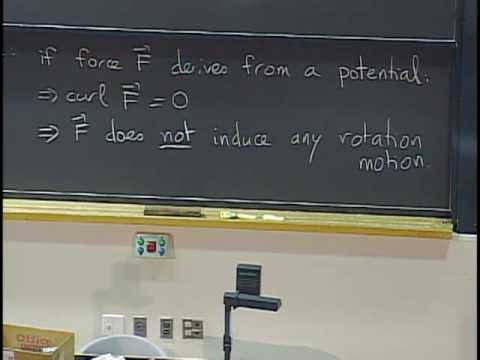 : if force F⃗ derives from a potential:
⇒ curl F⃗ = 0
⇒ F⃗ does not induce any rotation
motion.
Office